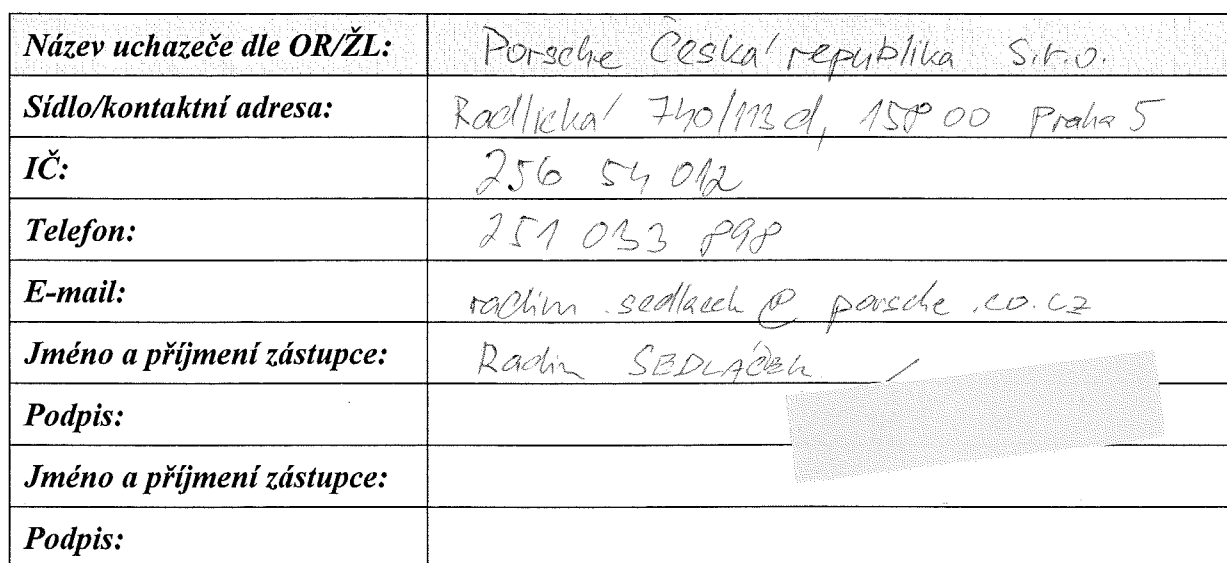 Název uchazeče dle OR/ŽL: Porsche Česká republika s.r.o.
Sídlo/kontaktní adresa: Radlická 740/113d, 158 00 Praha 5
IČ: 256 54 012
Telefon: 251 033 898
E-mail: radim.sedlacek@porsche.co.cz
Jméno a příjmení zástupce: Radim SEDLÁČEK
Podpis:
Jméno a příjmení zástupce:
Podpis: